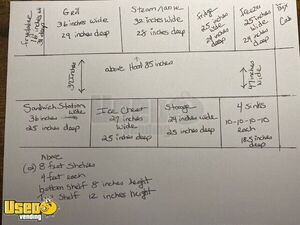 Grill
36 inches wide
29 inches deep
Steam Table
32 inches wide
28 inches deep
Fridge
inches wide
inches deep
Freezer
inches wide
inches deep
Cash
above Floor 85 inches
Sandwich Station
36 inches wide
25 inches deep
Ice Chest
27 inches wide
25 inches deep
Storage
24 inches wide
25 inches deep
4 sinks
10-10-10-10
each
18.5 inches deep
Above
(2) 8 foot shelves
4 feet each
bottom shelf 8 inches height
Top shelf 12 inches height
Used
vending